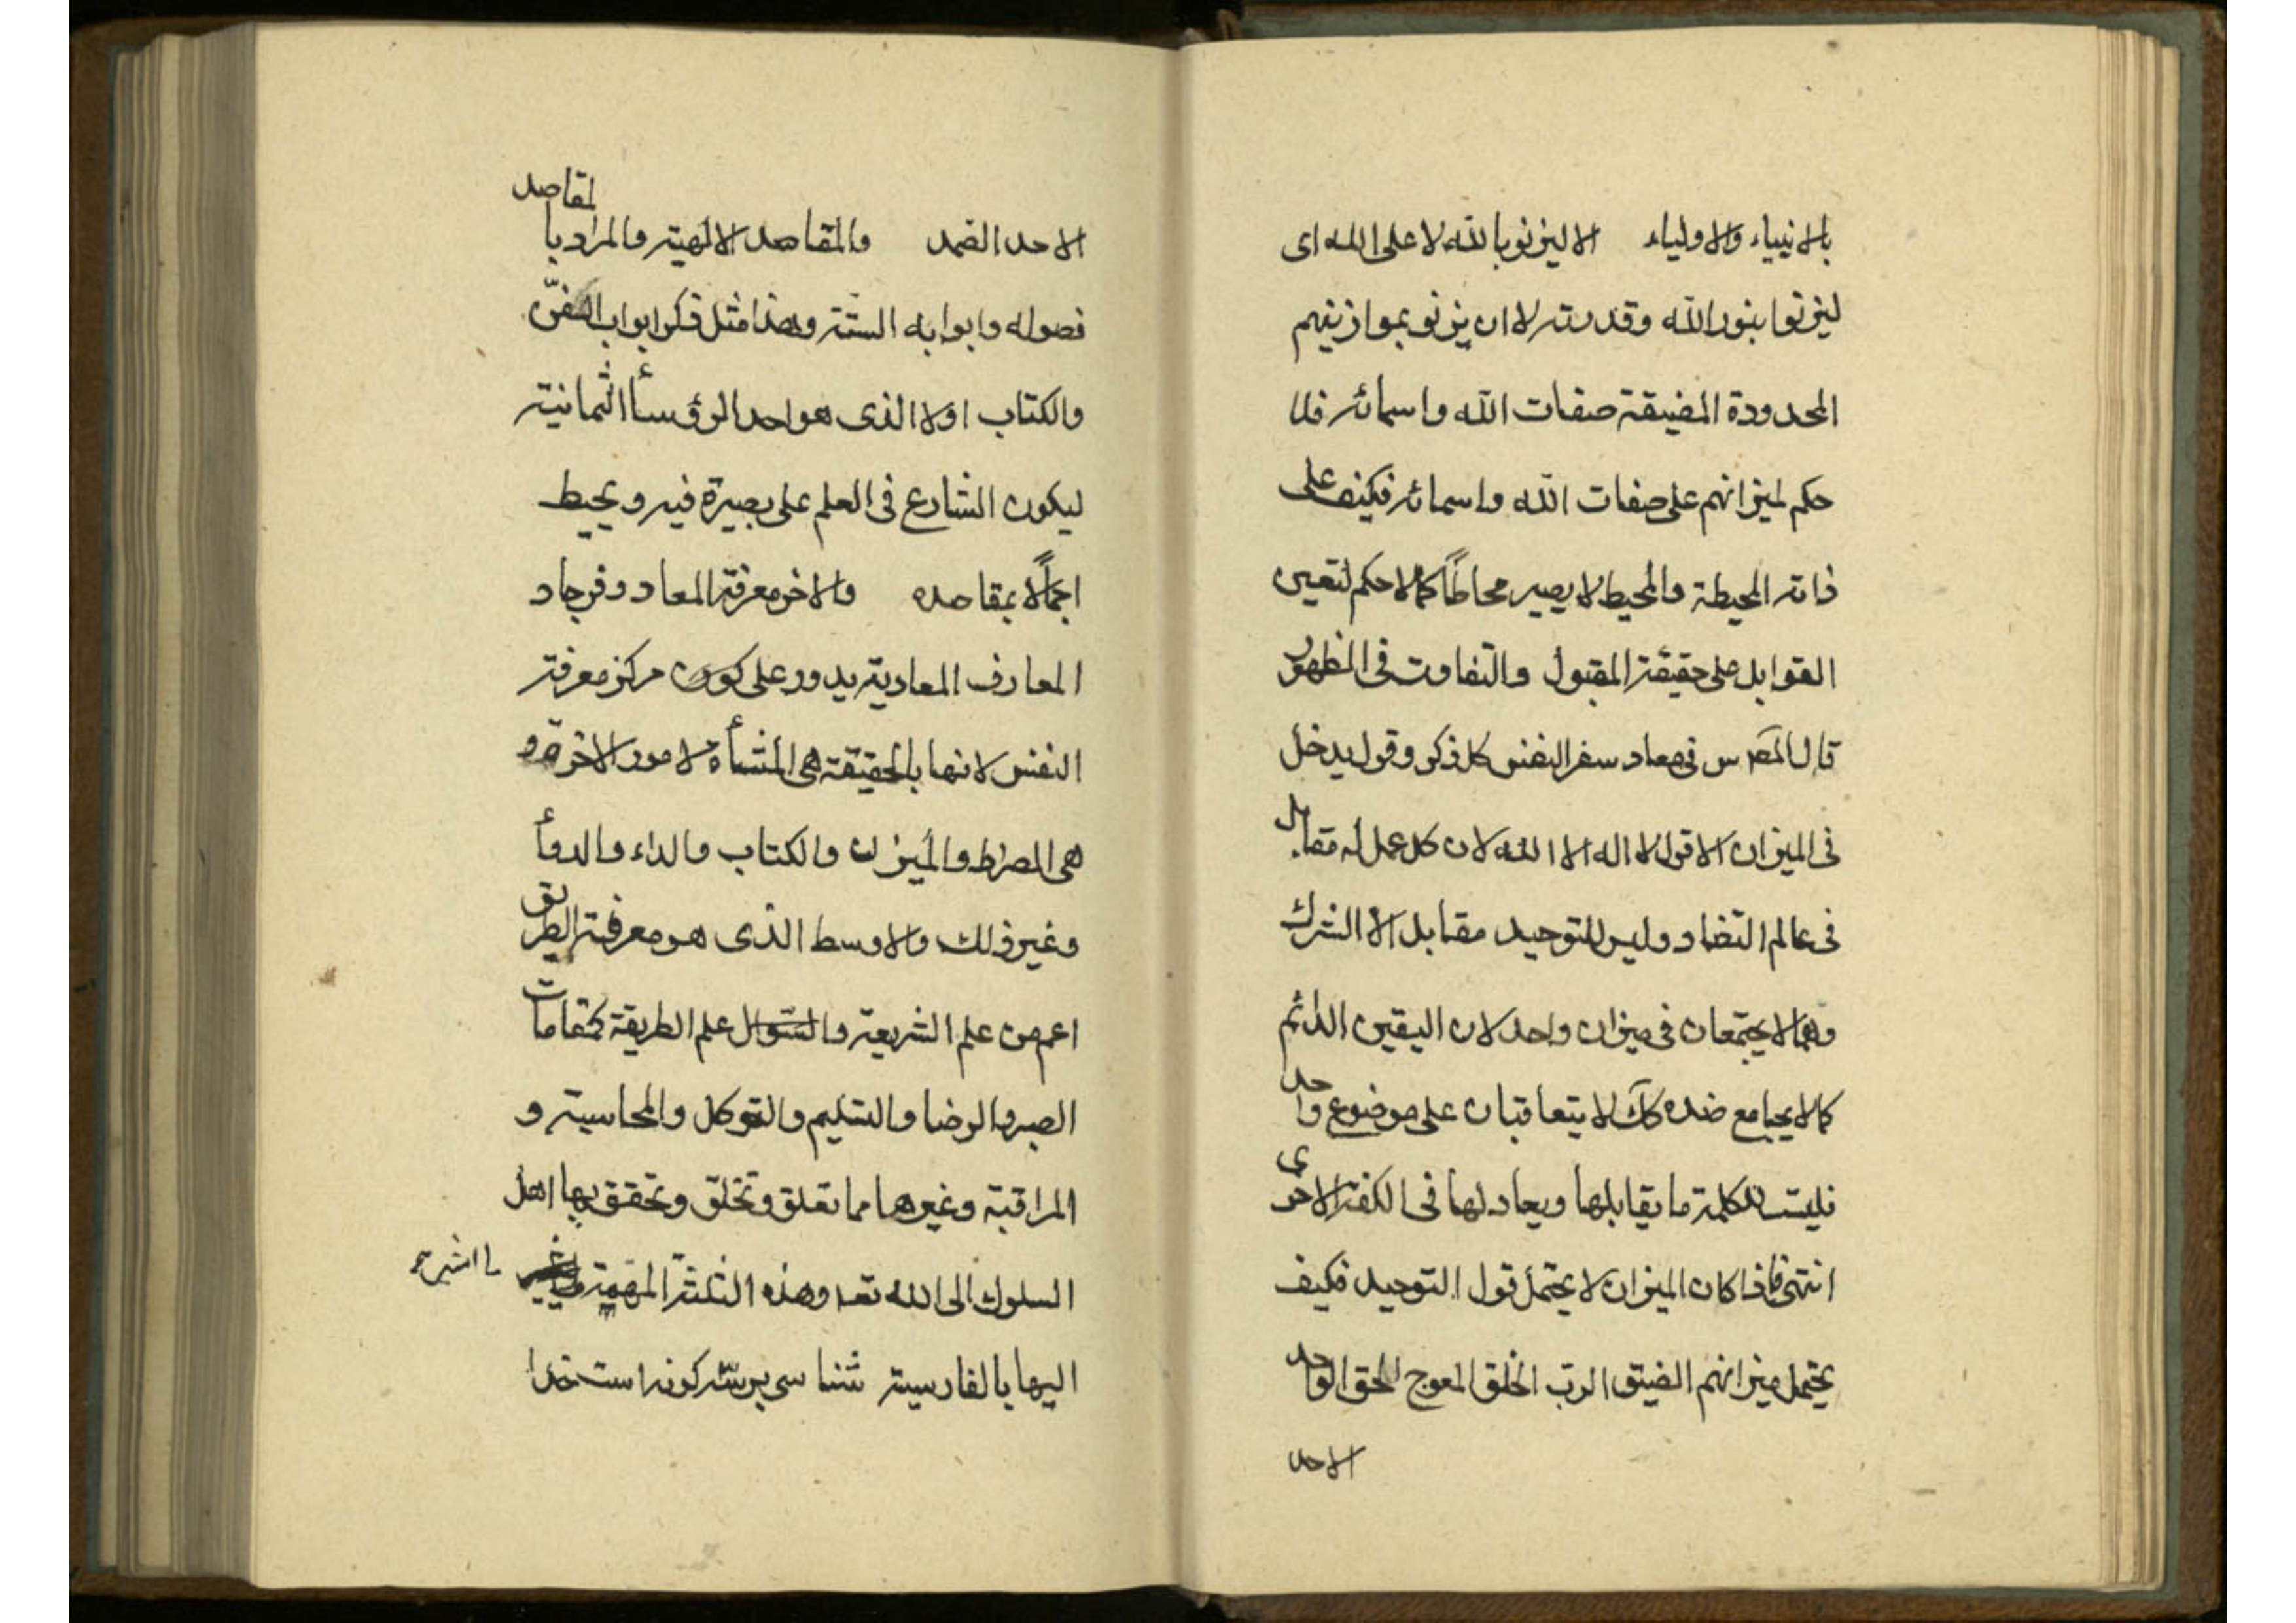 بالانبياء والاولياء الا ليزنوا بالله لا على الله اى
ليزنوا بنور الله وقدرته لا ان يزنو بموازينهم
المحدودة المضيقة صفات الله واسمائه فلا
حكم لميزانهم على صفات الله واسمائه فكيف على
ذاته المحيطة والمحيط لا يصير محاطاً كما لا حكم لتعين
القوابل على حقيقة المقبول والتفاوت فى الظهور
قال المص س فى معاد سفر النفس كل ذكر وقول يدخل
فى الميزان الا قول لا اله الا الله لان كل عمل له مقابل
فى عالم التضاد وليس للتوحيد مقابل الا الشرك
وهما لا يجتمعان فى ميزان واحد لان اليقين الدائم
كما لا يجامع ضده كك لا يتعاقبان على موضوع واحد
فليست للكلمة ما يقابلها ويعادلها فى الكفة الاخرى
انتهى فاذا كان الميزان لا يحتمل قول التوحيد فكيف
يحتمل ميزانهم الضيق الرب الخلق المعوج الحق الواحد
الاحد
الاحد الصمد والمقاصد الالهية والمراد بالمقاصد
فصوله وابوابه الستة وهذا مثل ذكر ابواب الفنّ
والكتاب اولا الذى هو احد الرؤس الثمانية
ليكون الشارع فى العلم على بصيرة فيه ويحيط
اجمالاً بمقاصده والاخر معرفة المعاد وفرجاد
المعارف المعادية يدور على كون مركز معرفة
النفس لانها بالحقيقة هى المنشأة لامور الاخرة و
هى الصراط والميزان والكتاب والداء والدوأ
وغير ذلك والاوسط الذى هو معرفة الطريق
اعم من علم الشريعة وعلم الطريقة كمقامات
الصبر والرضا والتسليم والتوكل والمحاسبة و
المراقبة وغيرها مما تعلق وتخلق وتحقق بها اهل
السلوك الى الله تعه وهذه الثلثة المهمة ما اشير
اليها بالفارسية شناسى برسه كونه است خدا